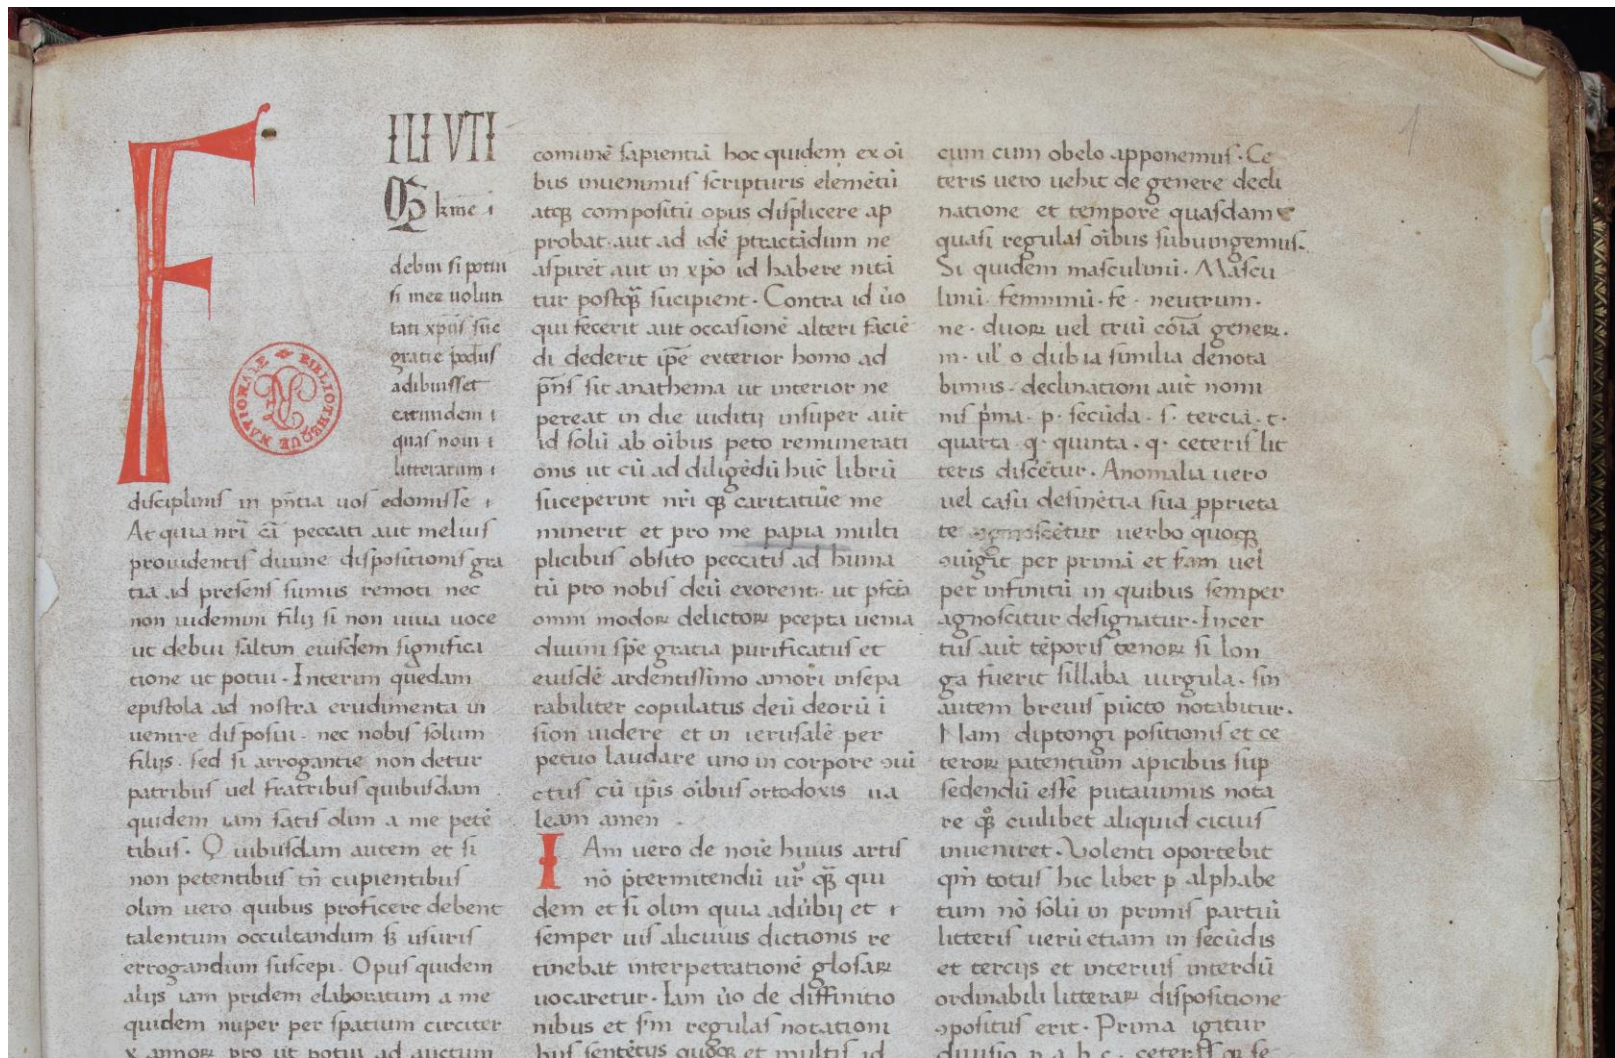 FILI UTI
debui si potui
si mee uolun
tati xpiſ ſue
gratie
adibuiſſet
eatundem i
quaſ noui i
litterarum i
diſcipliniſ in pñtia uoſ edomiſſe ·
At quia nr̄i peccati aut meliuſ
prouidentiſ diuine diſpoſitioniſ gra
tia ad preſenſ ſumus remoti nec
non uidemini filij ſi non uiua uoce
ut debui ſaltim eiuſdem ſignifica
tione ut potui · Interim quedam
epiſtola ad noſtra erudimenta in
uenire diſpoſui · nec nobiſ ſolum
filijs · ſed ſi arrogantie non detur
patribuſ uel fratribuſ quibuſdam
quidem iam ſatiſ olim a me petē
tibuſ · Quibuſdam autem et ſi
non petentibuſ tn̄ cupientibuſ
olim uero quibus proficere debent
talentum occultandum sʒ uſuris
errogandum ſuſcepi · Opuſ quidem
alijs iam pridem elaboratum a me
quidem nuper per ſpatium circiter
x annoꝝ pro ut potui ad auctum
comunē ſapientiā hoc quidem ex oi
bus inuenimuſ ſcripturis elemētū
atqꝫ compoſitū opus diſplicere ap
probat · aut ad idē ptractādum ne
aſpirēt aut in xp̄o id habere nitā
tur poſtqꝫ ſucipient · Contra id ůo
qui fecerit aut occaſionē alteri faciē
di dederit ip̄e exterior homo ad
p̄nſ ſit anathema ut interior ne
pereat in die iuditij inſuper aut
id ſolū ab oībus peto remunerati
onis ut cū ad diligēdū hūc librū
ſuceperint nr̄i qꝫ caritatiue me
minerit et pro me papia multi
plicibus obſito peccatiſ ad huma
tū pro nobiſ deū exorent · ut pfcā
omni modoꝝ delictoꝝ pcepta uenia
diuini ſpē gratia purificatuſ et
eiuſdē ardentiſſimo amori inſepa
rabiliter copulatus deū deorū i
ſion uidere et in ieruſalē per
petuo laudare uno in corpore ↄui
ctus cū ip̄is oībuſ ortodoxis ua
leam amen ·
IAm uero de noīe huius artiſ
nō p̄termitendū ur̄ qꝫ qui
dem et ſi olim quia adůbij et i
ſemper uiſ alicuiuſ dictionis re
tinebat interpetrationē gloſaꝝ
uocaretur · Iam ůo de diffinitio
nibus et ſm̄ regulaſ notationi
bus ſentētijs quoqꝫ et multiſ id
cum cum obelo apponemuſ · Ce
teris uero uehit de genere decli
natione et tempore quaſdam
quaſi regulaſ oībus ſubiungemuſ ·
Si quidem maſculinū · Maſcu
linū · femininū · fe · neutrum ·
ne · duoꝝ uel triū cōīa generꝝ ·
m · ul̓ o dubia ſimilia denota
bimus · declinationi aut nomi
niſ p̓ma · p · ſecūda · ſ · tercia · t ·
quarta · q · quinta · q · ceteriſ lit
teris diſcētur · Anomalia uero
uel caſu deſinētia ſua pprieta
te uerbo quoqꝫ
ↄiugīt per primā et fam uel
per infinitū in quibus ſemper
agnoſcitur deſignatur · Incer
tuſ aut tēporiſ tenoꝝ ſi lon
ga fuerit ſillaba uirgula · ſin
autem breuis pūcto notabitur ·
Nam diptongi poſitioniſ et ce
teroꝝ patentium apicibus ſup
ſedendū eſſe putauimus nota
re qꝫ cuilibet aliquid citius
inueniret · Uolenti oportebit
qm̄ totus hic liber p alphabe
tum nō ſolū in primiſ partiū
litteris uerū etiam in ſecūdis
et tercijs et interiuſ interdū
ordinabili litteraꝝ diſpoſitione
ↄpoſitus erit · Prima igitur
BIBLIOTHEQUE NATIONALE
1